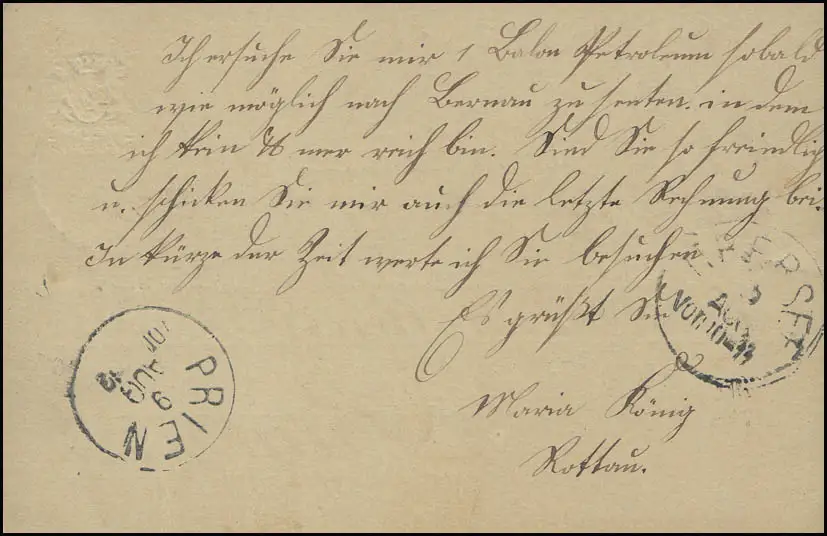 Ich ersuche Sie mir 1 Balon Petroleum sobald
wie möglich nach Bernau zu senten. in dem
ich kein % mer reich bin. Sind Sie so freindlich
u. schicken Sie mir auch die letzte Rechnung bei.
In kürze der Zeit werte ich Sie besuchen
Es grüßt Sie
Maria König
Rottau.
PRIEN
9
AUG
Vorm